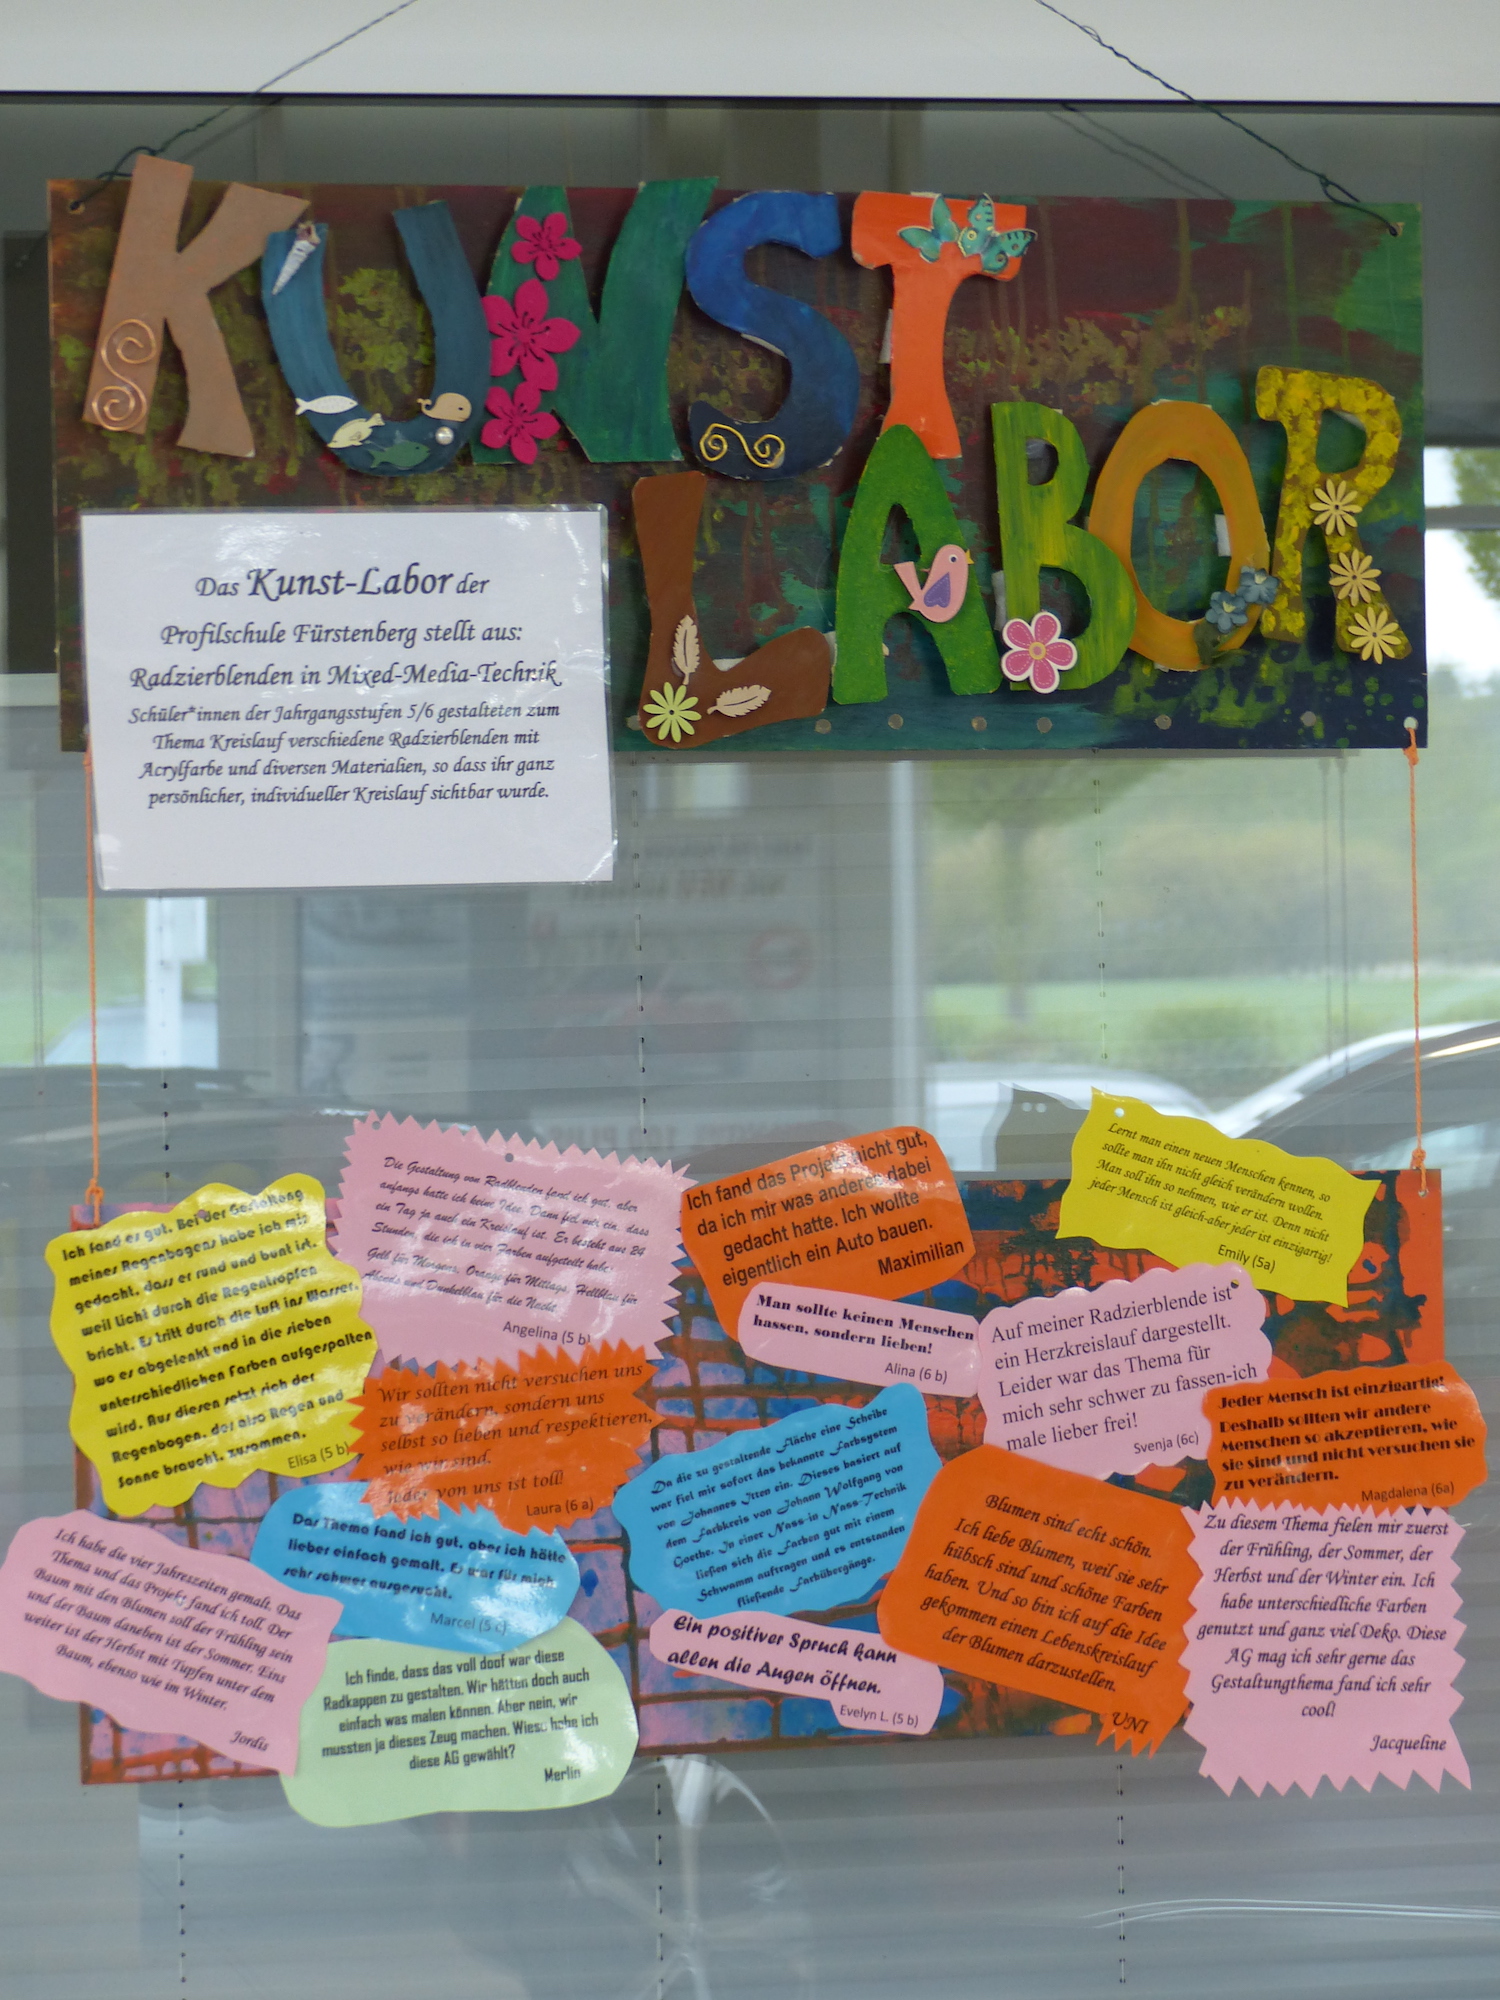 KUNST
LABOR
Das Kunst-Labor der
Profilschule Fürstenberg stellt aus:
Radzierblenden in Mixed-Media-Technik
Schüler*innen der Jahrgangsstufen 5/6 gestalteten zum
Thema Kreislauf verschiedene Radzierblenden mit
Acrylfarbe und diversen Materialien, so dass ihr ganz
persönlicher, individueller Kreislauf sichtbar wurde.
Ich fand es gut. Bei der Gestaltung
meines Regenbogens habe ich mir
gedacht, dass er rund und bunt ist,
weil Licht durch die Regentropfen
bricht. Es tritt durch die Luft ins Wasser,
wo es abgelenkt und in die sieben
unterschiedlichen Farben aufgespalten
wird. Aus diesen setzt sich der
Regenbogen, der also Regen und
Sonne braucht, zusammen.
Elisa (5 b)
Die Gestaltung von Radblenden fand ich gut, aber
anfangs hatte ich keine Idee. Dann fiel mir ein, dass
ein Tag ja auch ein Kreislauf ist. Er besteht aus 24
Stunden, die ich in vier Farben aufgeteilt habe:
Gelb für Morgens, Orange für Mittags, Hellblau für
Abends und Dunkelblau für die Nacht.
Angelina (5 b)
Ich fand das Projekt nicht gut,
da ich mir was anderes dabei
gedacht hatte. Ich wollte
eigentlich ein Auto bauen.
Maximilian
Lernt man einen neuen Menschen kennen, so
sollte man ihn nicht gleich verändern wollen.
Man soll ihn so nehmen, wie er ist. Denn nicht
jeder Mensch ist gleich-aber jeder ist einzigartig!
Emily (5a)
Man sollte keinen Menschen
hassen, sondern lieben!
Alina (6 b)
Auf meiner Radzierblende ist
ein Herzkreislauf dargestellt.
Leider war das Thema für
mich sehr schwer zu fassen-ich
male lieber frei!
Svenja (6c)
Wir sollten nicht versuchen uns
zu verändern, sondern uns
selbst so lieben und respektieren,
wie wir sind.
Jeder von uns ist toll!
Laura (6 a)
Jeder Mensch ist einzigartig!
Deshalb sollten wir andere
Menschen so akzeptieren, wie
sie sind und nicht versuchen sie
zu verändern.
Magdalena (6a)
Da die zu gestaltende Fläche eine Scheibe
war fiel mir sofort das bekannte Farbsystem
von Johannes Itten ein. Dieses basiert auf
dem Farbkreis von Johann Wolfgang von
Goethe. In einer Nass-in Nass-Technik
ließen sich die Farben gut mit einem
Schwamm auftragen und es entstanden
fließende Farbübergänge.
Das Thema fand ich gut, aber ich hätte
lieber einfach gemalt. Es war für mich
sehr schwer ausgesucht.
Marcel (5 c)
Ich habe die vier Jahreszeiten gemalt. Das
Thema und das Projekt fand ich toll. Der
Baum mit den Blumen soll der Frühling sein
und der Baum daneben ist der Sommer. Eins
weiter ist der Herbst mit Tupfen unter dem
Baum, ebenso wie im Winter.
Jordis
Ich finde, dass das voll doof war diese
Radkappen zu gestalten. Wir hätten doch auch
einfach was malen können. Aber nein, wir
mussten ja dieses Zeug machen. Wieso habe ich
diese AG gewählt?
Merlin
Ein positiver Spruch kann
allen die Augen öffnen.
Evelyn L. (5 b)
Blumen sind echt schön.
Ich liebe Blumen, weil sie sehr
hübsch sind und schöne Farben
haben. Und so bin ich auf die Idee
gekommen einen Lebenskreislauf
der Blumen darzustellen.
UNI
Zu diesem Thema fielen mir zuerst
der Frühling, der Sommer, der
Herbst und der Winter ein. Ich
habe unterschiedliche Farben
genutzt und ganz viel Deko. Diese
AG mag ich sehr gerne das
Gestaltungthema fand ich sehr
cool!
Jacqueline